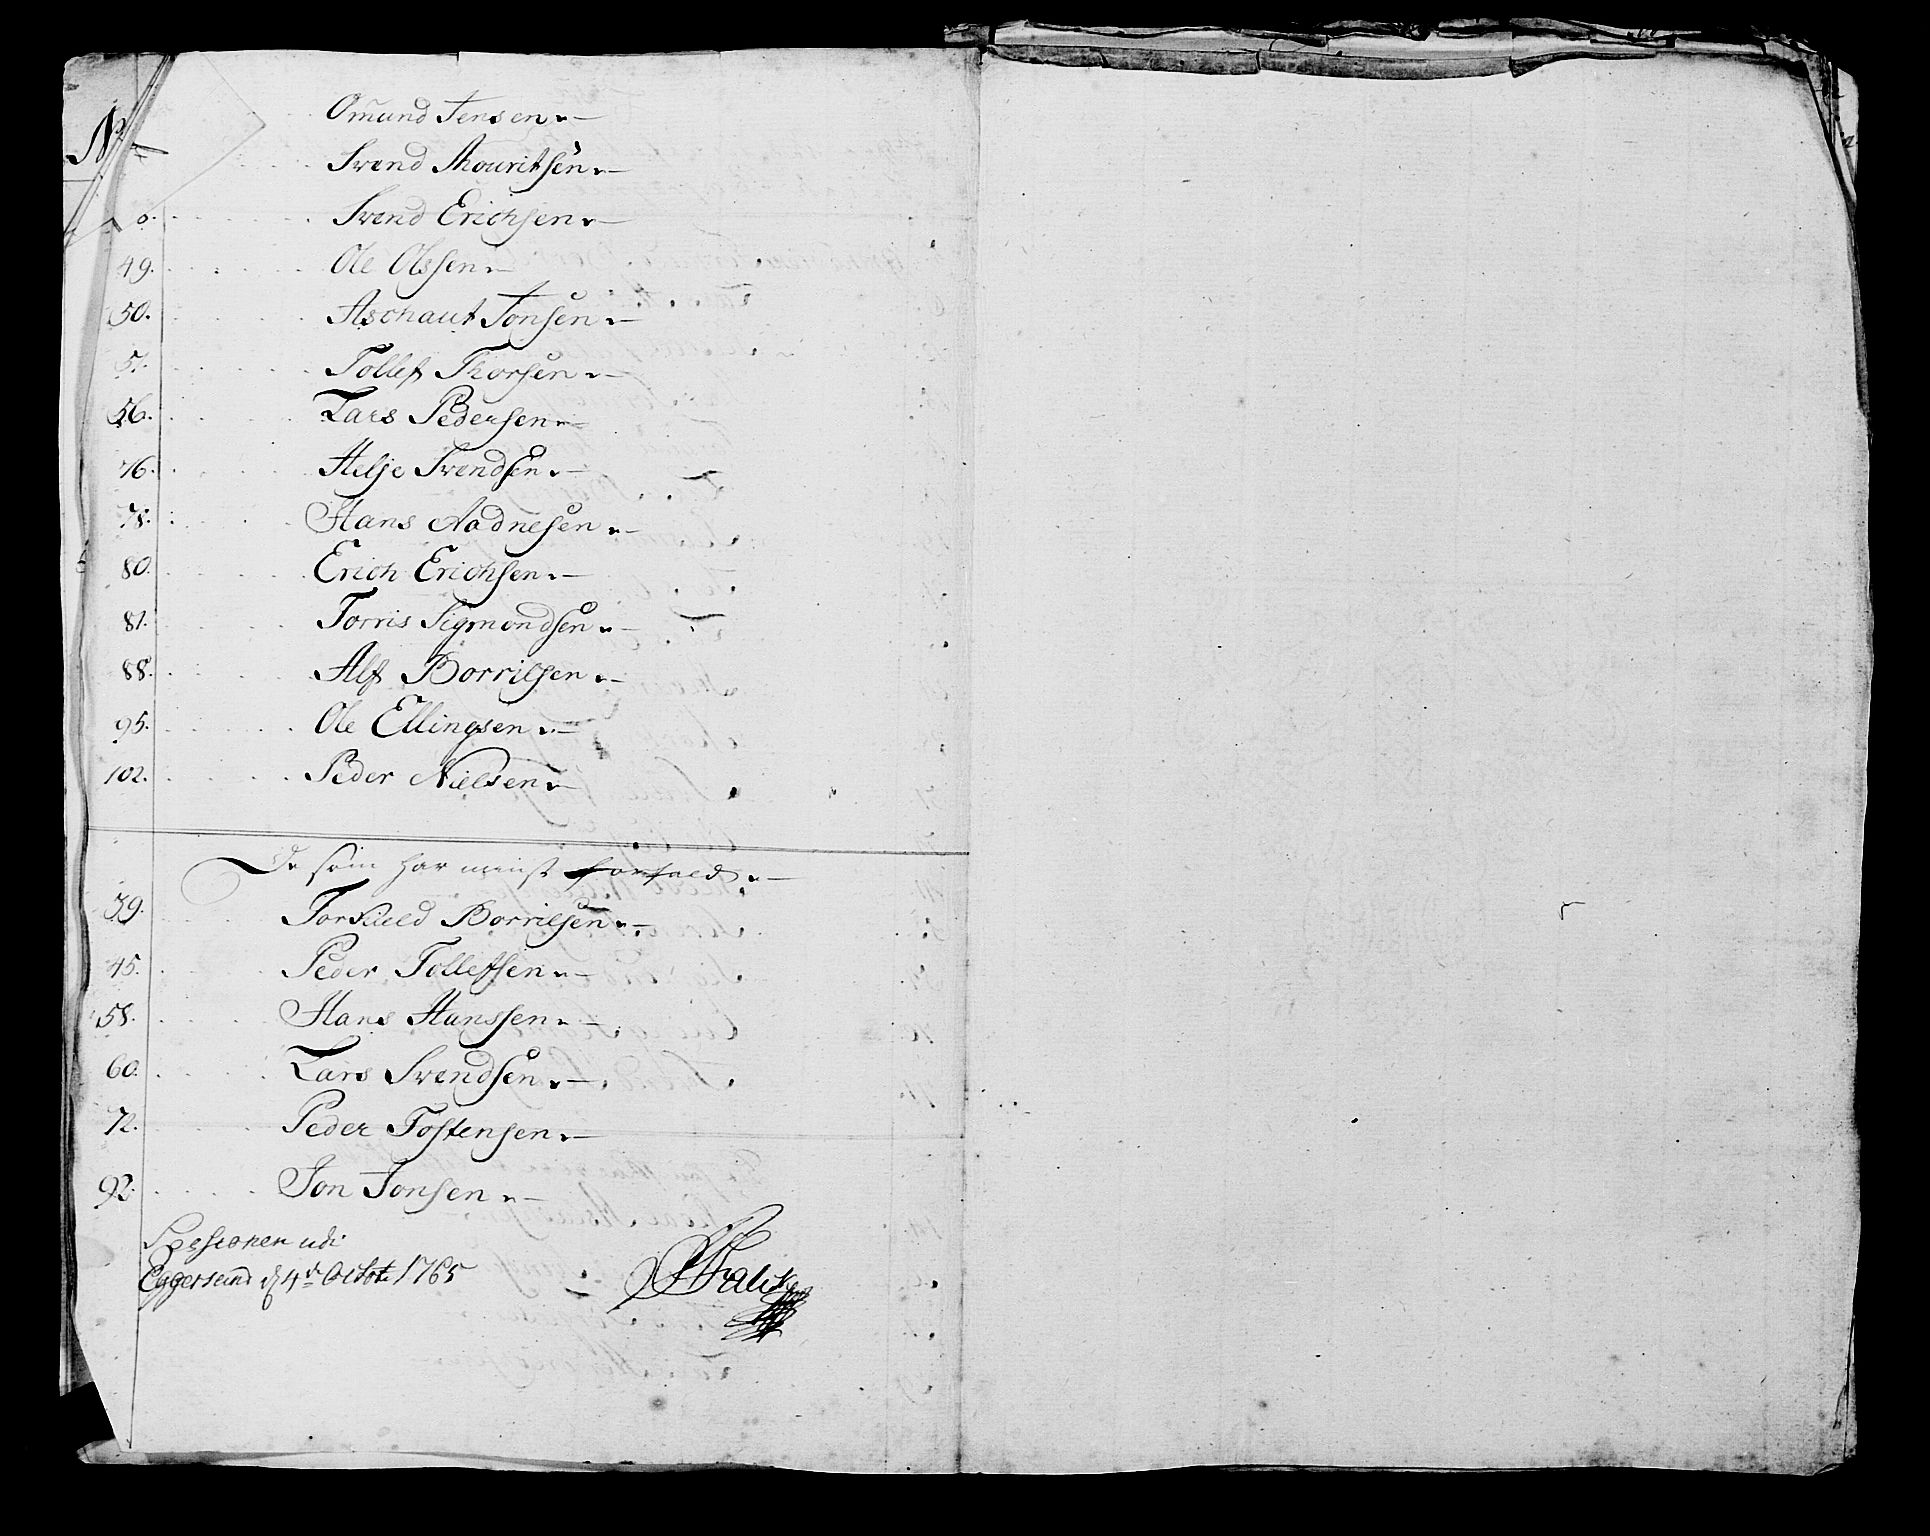 No
Omund Jensen
Svend Mouritsen
0. Svend Erichsen
49. Ole Olssen
50. Aschaut Jonsen
51. Tollef Thorsen
56. Lars Pedersen
76. Helje Svendsen
78. Hans Aadnesen
80. Erich Erichsen
81. Torris Sigmondsen
88. Alf Borrilsen
95. Ole Ellingsen
102. Peder Nielsen
De som har minst forfald
39. Torkield Borrilsen
45. Peder Tollefsen
58. Hans Hanssen
60. Lars Svendsen
72. Peder Tostensen
92. Jon Jonsen
Sessionen udi
Eggersund d 4de Octobr 1765